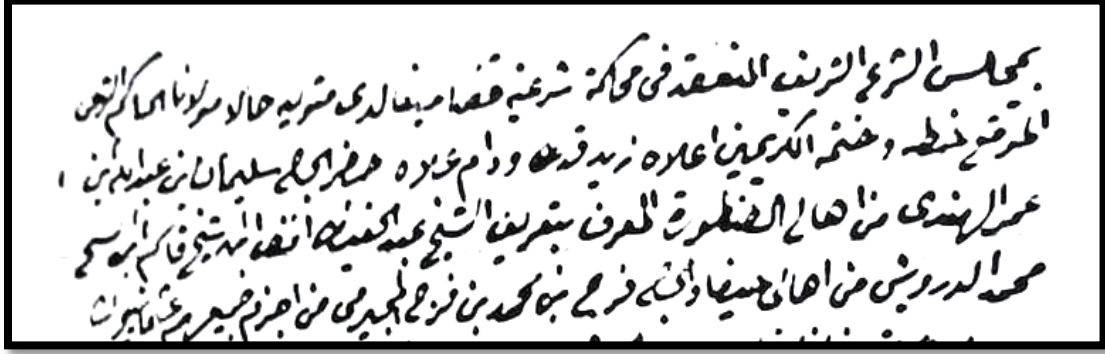 بمجلس الشرع الشريف المنعقد في محكمة شرعية قضا حيفا لدى متوليه حالا مولانا الحاكم الشرعي
الموقع بخطه وختمه الكريمين اعلاه زيد قدره ودام علاه حضر الحاج سليمان بن عبدالله بن
عمر الهندي من اهالي الطنطورة المعرف بتعريف الشيخ عبد الحفيظ ابن الشيخ قاسم
محمد الدرويش من اهالي حيفا والشيخ فرج بن محمد بن فرج من اجزم